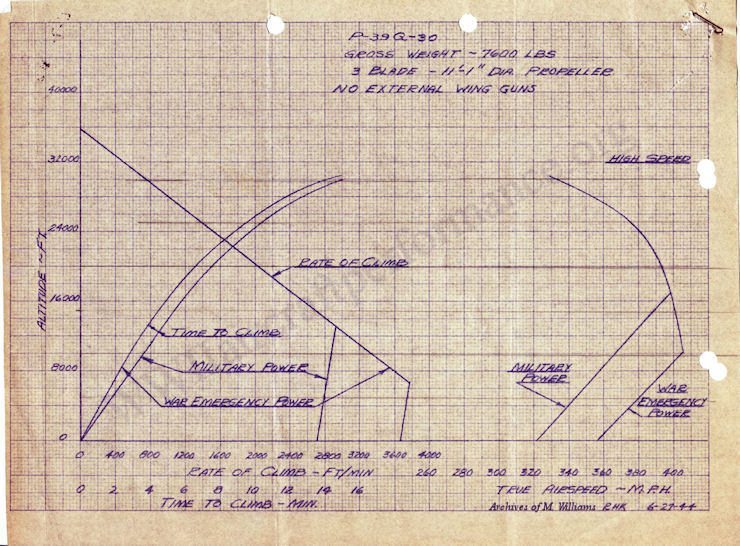 P-39Q-30
GROSS WEIGHT ~ 7600 LBS
3 BLADE - 11'-1" DIA. PROPELLER
NO EXTERNAL WING GUNS
40000
32000
HIGH SPEED
24000
ALTITUDE ~ FT.
RATE OF CLIMB
16000
TIME TO CLIMB
MILITARY POWER
MILITARY
POWER
8000
WAR EMERGENCY POWER
WAR
EMERGENCY
POWER
0
0 400 800 1200 1600 2000 2400 2800 3200 3600 4000
RATE OF CLIMB - FT/MIN
260 280 300 320 340 360 380 400
0 2 4 6 8 10 12 14 16
TRUE AIRSPEED ~ M.P.H.
TIME TO CLIMB ~ MIN.
Archives of M. Williams
RHR 6-27-44